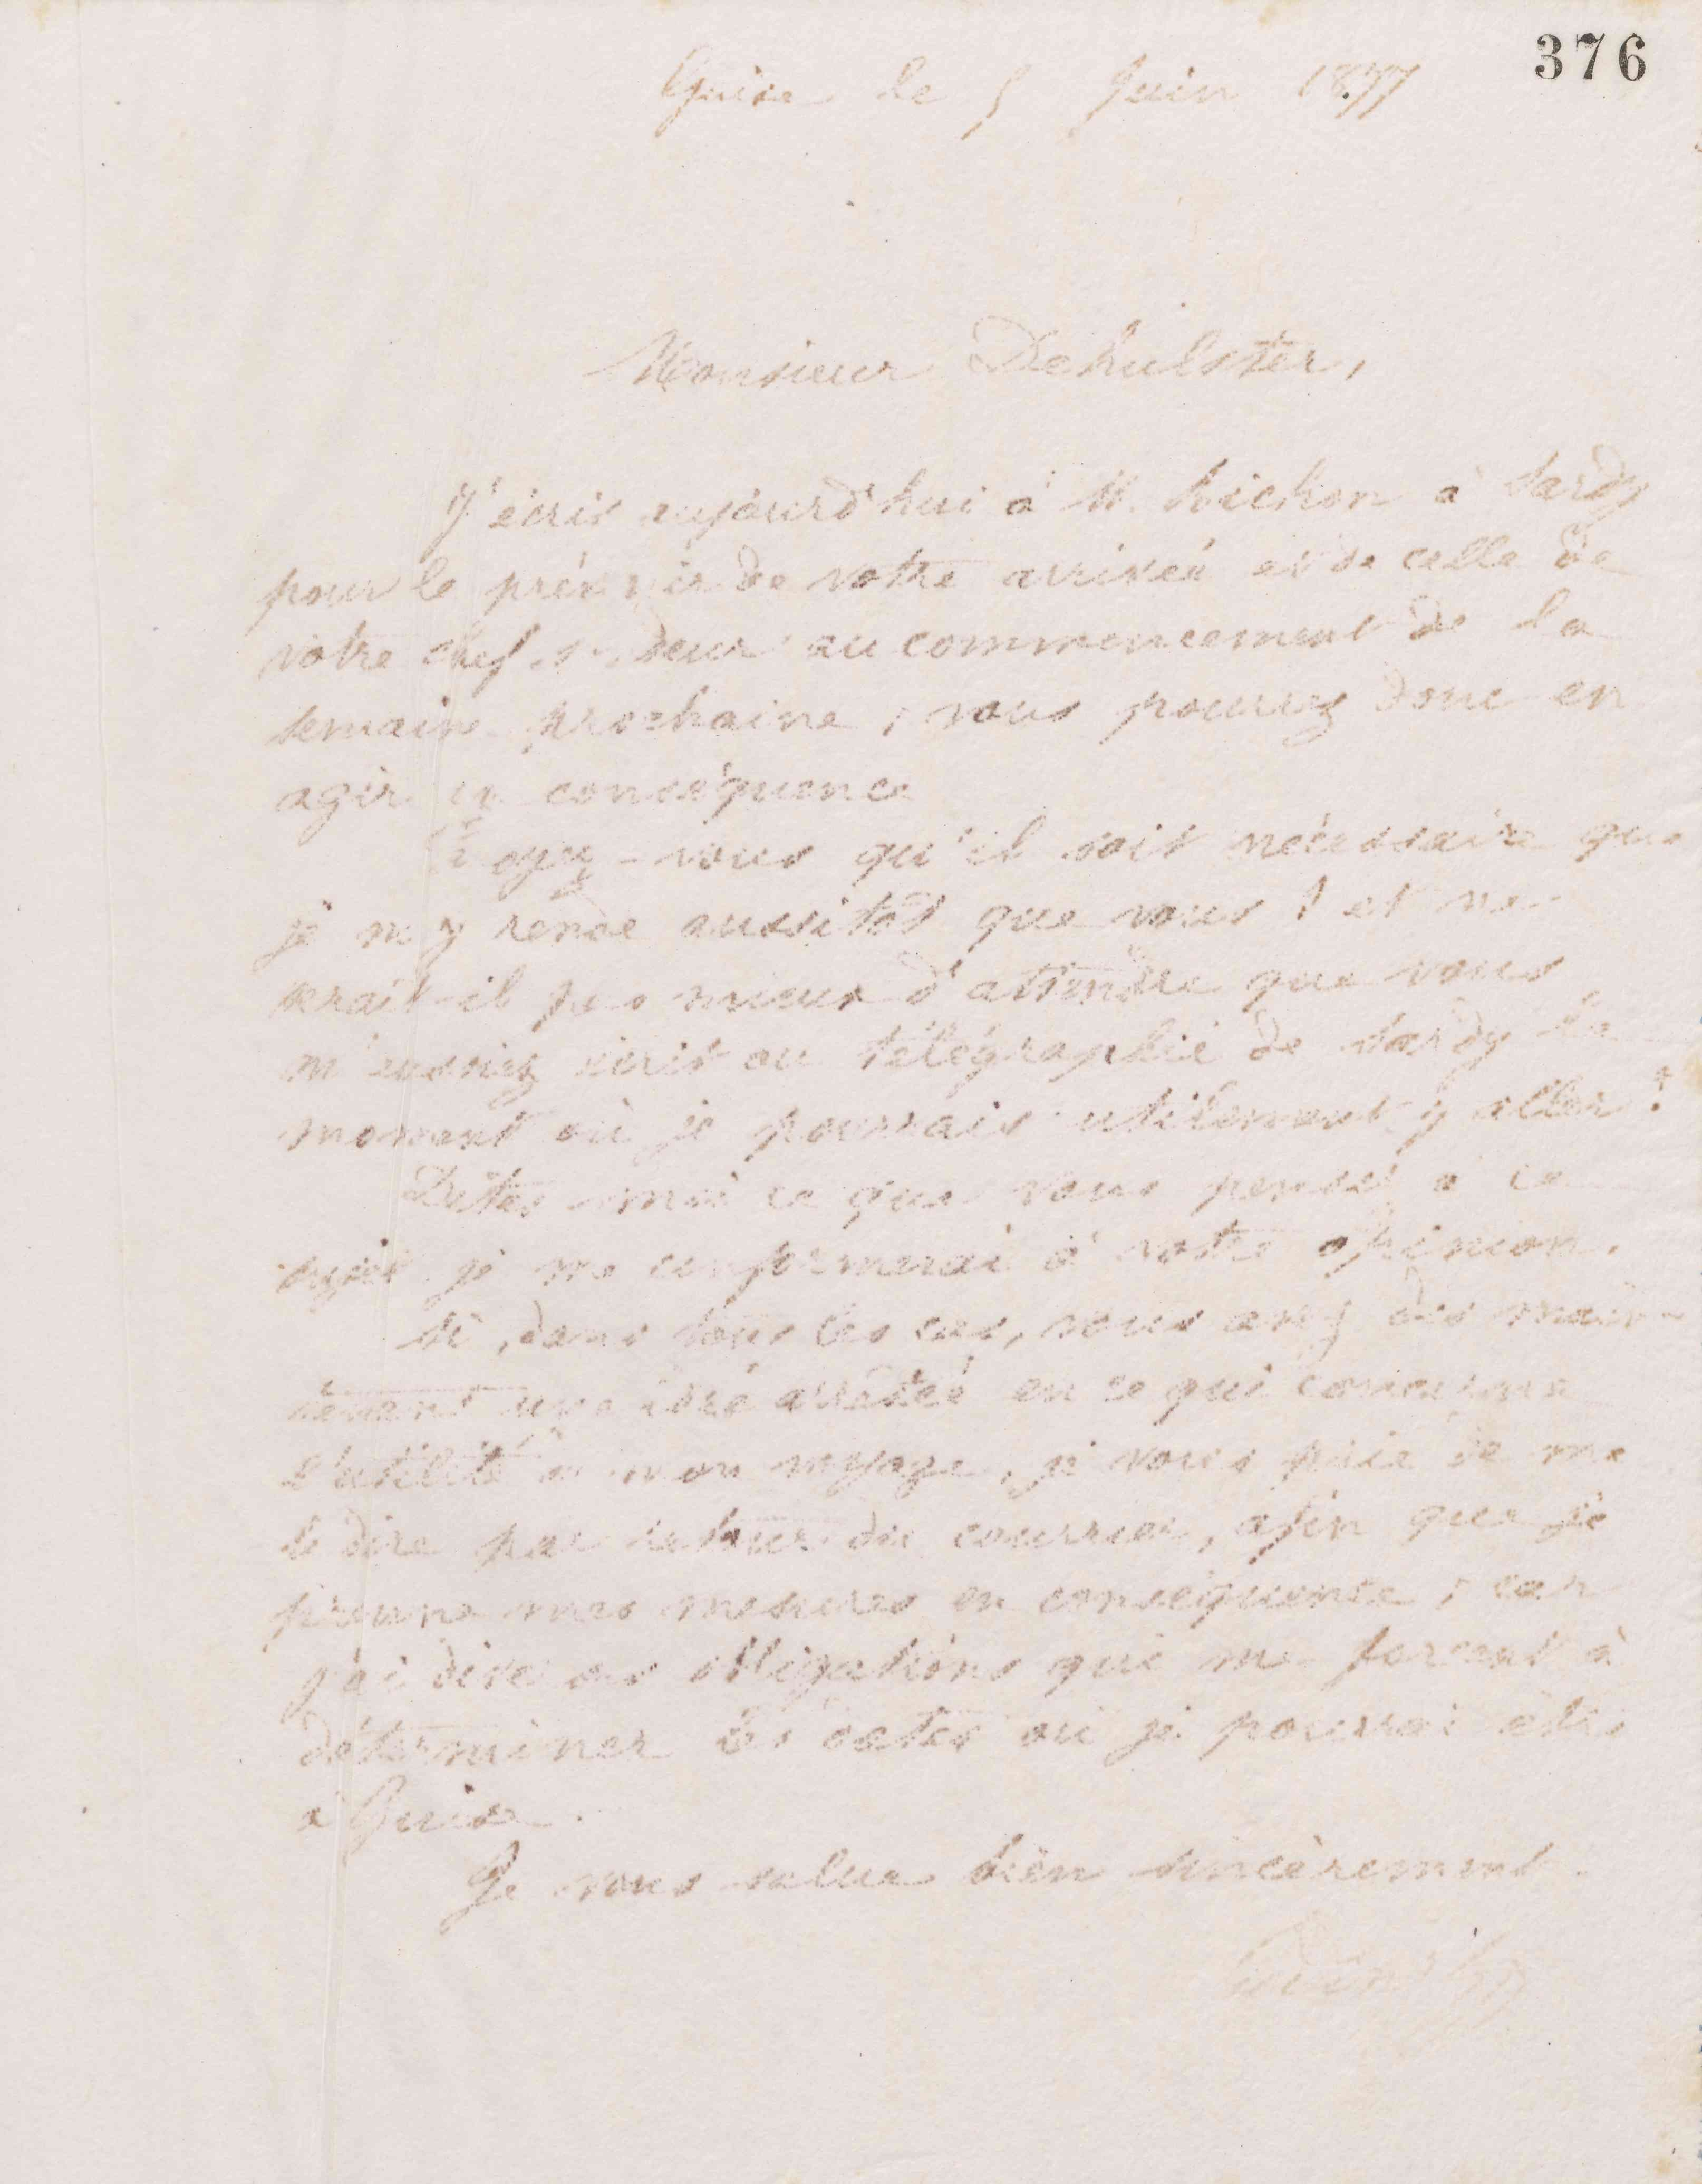 376
Guise le 5 Juin 1877
Monsieur Dehulster,
J'écris aujourd'hui à M. à Sardy
pour le prévenir de votre arrivée et de celle de
votre chef sondeur au commencement de la
semaine prochaine, vous pourrez donc en
agir en conséquence
Croyez-vous qu'il soit nécessaire que
je m'y rende aussitôt que vous ? et ne
serait-il pas mieux d'attendre que vous
m'eussiez écrit ou télégraphié de Sardy le
moment où je pourrais utilement y aller ?
Dites-moi ce que vous pensez à ce
sujet je me conformerai à votre opinion.
Si, dans tous les cas, vous avez dès main-
tenant une idée arrêtée en ce qui concerne
l'utilité de mon voyage, je vous prie de me
le dire par retour du courrier, afin que je
prenne mes mesures en conséquence, car
j'ai diverses obligations qui me forcent à
déterminer les dates où je pourrai être
à Guise.
Je vous salue bien sincèrement.
Godin